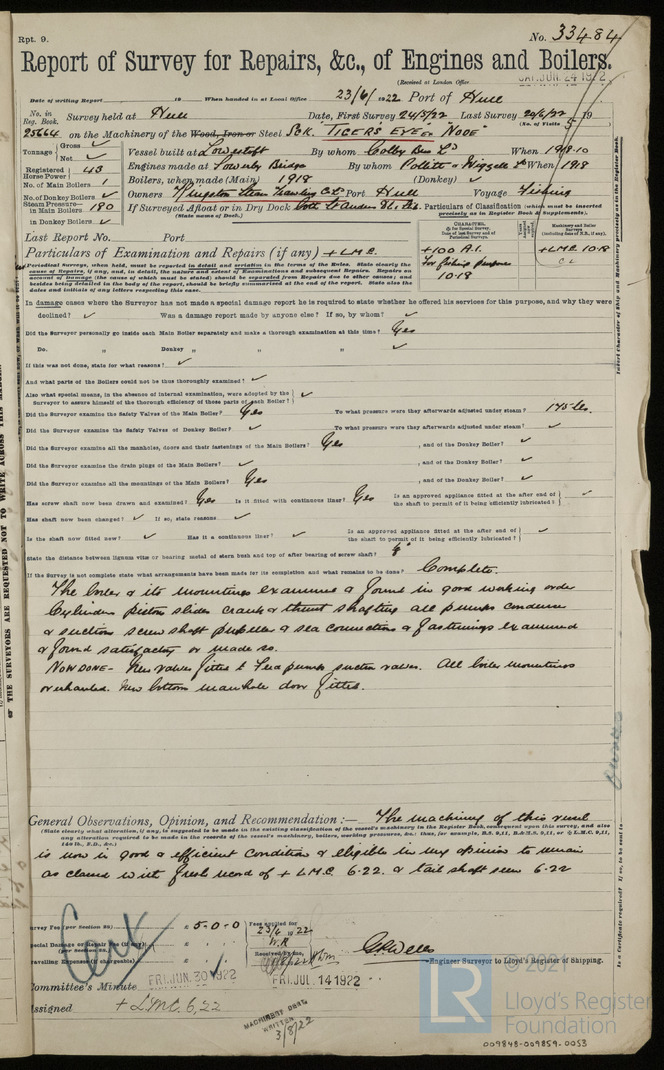 Rpt. 9.
No. 33484
Report of Survey for Repairs, &c., of Engines and Boilers.
(Received at London Office
SAT. JUN. 24 1922
Date of writing Report 19 When handed in at Local Office 23/6/1922 Port of Hull
No. in Reg. Book. Survey held at Hull Date, First Survey 24/5/22 Last Survey 20/6/22 19
(No. of Visits 5
25664 on the Machinery of the Wood, Iron or Steel Sck. "TIGER'S EYE" Ex "NODE"
Tonnage Gross ✓
Net ✓
Vessel built at Lowestoft By whom Colby Bros Ld When 1918.10
Registered Horse Power 43
Engines made at Sowerby Bridge By whom Pollitt & Wigzell Ld When 1918
No. of Main Boilers 1
Boilers, when made (Main) 1918 (Donkey) ✓
No. of Donkey Boilers ✓
Owners Kingston Steam Trawling Co Ld Port Hull Voyage Fishing
Steam Pressure— in Main Boilers 180
in Donkey Boilers ✓
If Surveyed Afloat or in Dry Dock Both St Andrews
(State name of Dock.)
Particulars of Classification (which must be inserted precisely as in Register Book & Supplements).
Last Report No. Port
Particulars of Examination and Repairs (if any) + LMC.
+100 A.1. for fishing purposes 10-18
+LMC 10.18
CL
In damage cases where the Surveyor has not made a special damage report he is required to state whether he offered his services for this purpose, and why they were
declined? ✓ Was a damage report made by anyone else? If so, by whom? ✓
Did the Surveyor personally go inside each Main Boiler separately and make a thorough examination at this time? Yes
Do. „ Donkey „ „ „ ✓
If this was not done, state for what reasons? ✓
And what parts of the Boilers could not be thus thoroughly examined? ✓
Also what special means, in the absence of internal examination, were adopted by the Surveyor to assure himself of the thorough efficiency of those parts of each Boiler? ✓
Did the Surveyor examine the Safety Valves of the Main Boiler? Yes To what pressure were they afterwards adjusted under steam? 175 lbs.
Did the Surveyor examine the Safety Valves of Donkey Boiler? ✓ To what pressure were they afterwards adjusted under steam? ✓
Did the Surveyor examine all the manholes, doors and their fastenings of the Main Boilers? Yes, and of the Donkey Boiler? ✓
Did the Surveyor examine the drain plugs of the Main Boilers? ✓, and of the Donkey Boiler? ✓
Did the Surveyor examine all the mountings of the Main Boilers? Yes, and of the Donkey Boiler? ✓
Has screw shaft now been drawn and examined? Yes Is it fitted with continuous liner? Yes Is an approved appliance fitted at the after end of the shaft to permit of it being efficiently lubricated? ✓
Has shaft now been changed? ✓ If so, state reasons ✓
Is the shaft now fitted new? ✓ Has it a continuous liner? ✓ Is an approved appliance fitted at the after end of the shaft to permit of it being efficiently lubricated? ✓
State the distance between lignum vitæ or bearing metal of stern bush and top of after bearing of screw shaft?
If the Survey is not complete state what arrangements have been made for its completion and what remains to be done? Complete.
The boiler & its mountings examined & found in good working order
Cylinders pistons slides crank & thrust shafting all pumps condenser
& suctions screw shaft propeller & sea connections & fastenings examined
& found satisfactory or made so.
NOW DONE – New valves fitted to feed pumps suction valves. All boiler mountings
overhauled. New bottom manhole door fitted.
General Observations, Opinion, and Recommendation :— The machinery of this vessel
(State clearly what alteration, if any, is suggested to be made in the existing classification of the vessel's machinery in the Register Book, consequent upon this survey, and also
is now in good & efficient condition & eligible in my opinion to remain
as classed with fresh record of + LMC 6.22. & tail shaft seen 6-22
Survey Fee (per Section 28) £ 5-0-0
Fees applied for
23/6 1922
W.R
Special Damage or Repair Fee (if any) (per Section 28.) £
Travelling Expenses (if chargeable) £
Received by me,
Engineer Surveyor to Lloyd's Register of Shipping.
Committee's Minute FRI. JUN. 30 1922
FRI. JUL. 14 1922
Assigned + LMC. 6,22
MACHINERY CERT. WRITTEN
3/8/22
© 2021
LR
Lloyd's Register
Foundation
009848-009859-0053